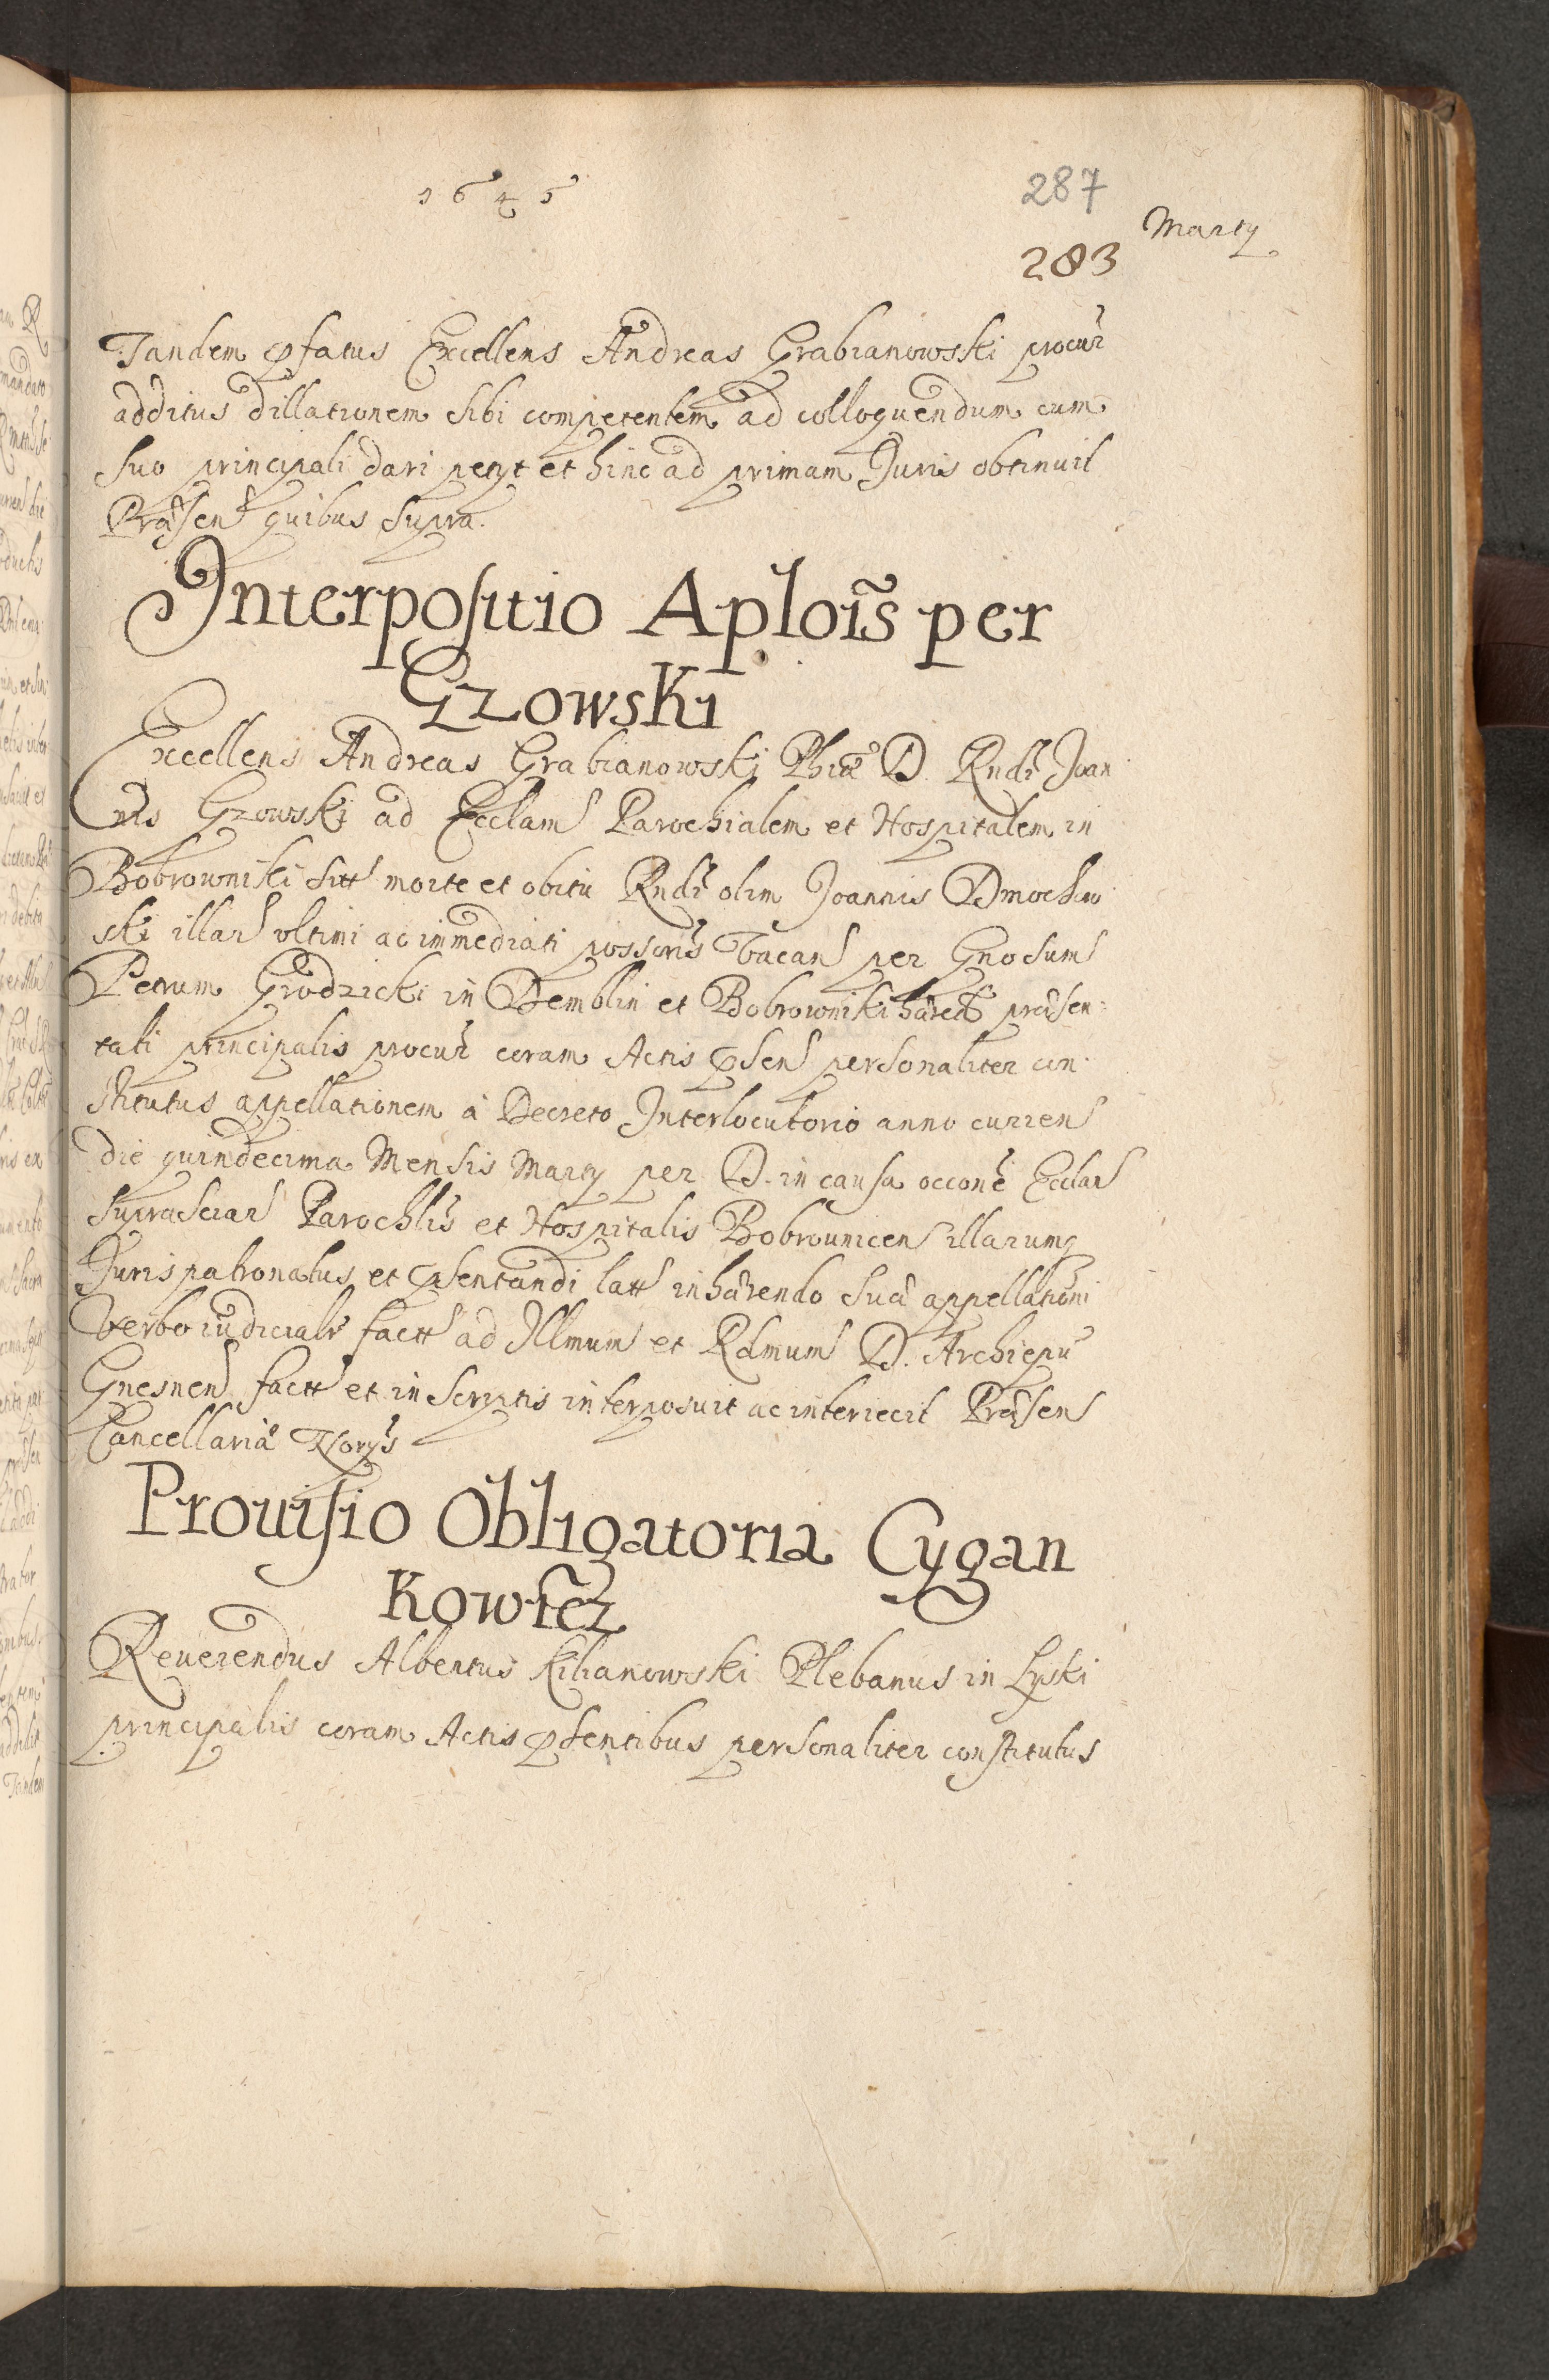 1645
287
Martij
283
Tandem pfatus Excellens Andreas Grabianowski procur
additus dillationem sibi competentem ad colloquendum cum
suo principali dari petyt et hinc ad primam Juris obtinuit
Præsent quibus supra.
Interpositio Aplois per
Gzowski
Excellens Andreas Grabianowski Phiæ D. Rndi Joan
nis Gzowski ad Ecclam Parochialem et Hospitalem in
Bobrowniki sitt morte et obitu Rndi olim Joannis Dmochow
ski illar ultimi ac immediati possoris vacan per Gnosum
Petrum Grodzicki in Demblin et Bobrowniki hæred præsen:
tati principalis procur coram Actis psen personaliter con:
stitutus appellationem à Decreto Interlocutorio anno curren
die quindecima Mensis Martij per D. in causa occone Ecclar
suprascrar Parochlis et Hospitalis Bobrounicen illarumq
Juris patronatus et psentandi latt inhærendo suæ appellationi
verbo iudicialr factt ad Illmum et Rdmum D. Archiepu
Gnesnen factt et in scryptis interposuit ac interiecit Præsen
Cancellariæ Norys
Prouisio Obligatoria Cygan
Kow
Reuerendus Albertus Kilianowski Plebanus in Lyski
principalis coram Actis psentibus personaliter constitutus